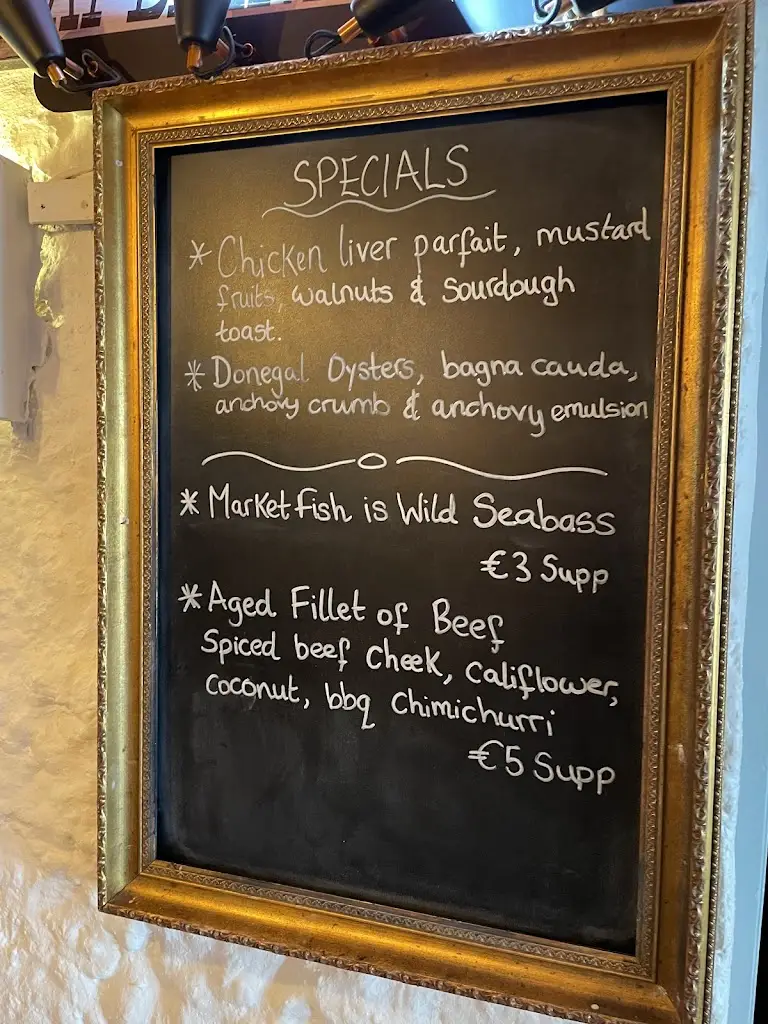 SPECIALS
* Chicken liver parfait, mustard
fruits, walnuts & Sourdough
toast.
* Donegal Oysters, bagna cauda,
anchovy crumb & anchovy emulsion
* Market fish is Wild Seabass
€3 Supp
* Aged Fillet of Beef
Spiced beef cheek, califlower,
coconut, bbq chimichurri
€5 Supp